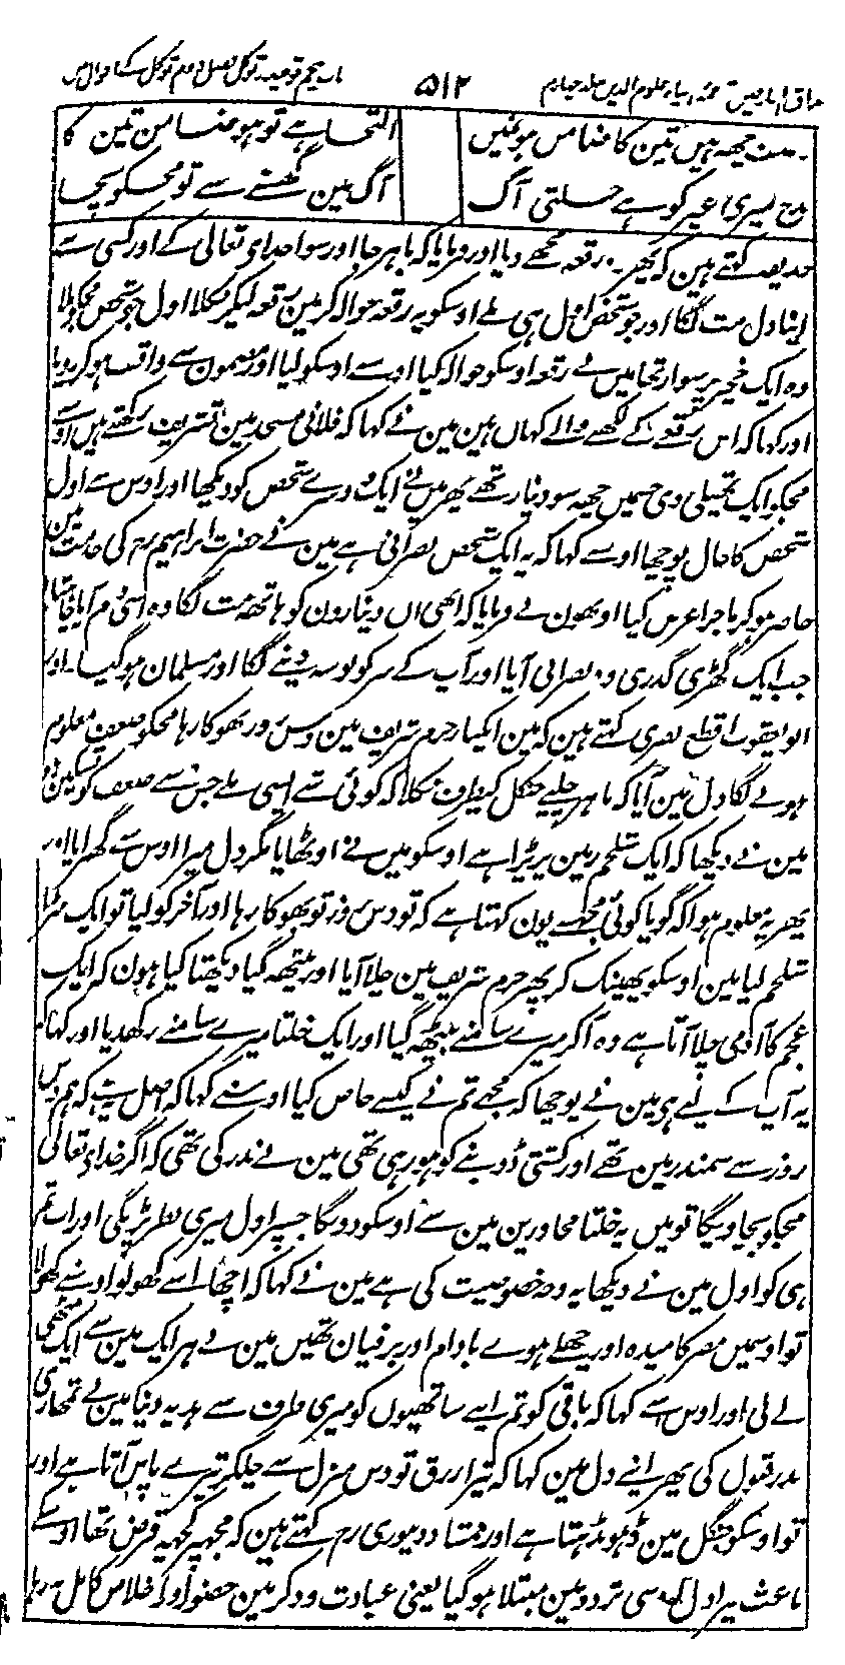 مذاق العارفین ترجمہ احیاء علوم الدین جلد چہارم ۵۱۲ باب پنجم توحید و توکل فصل دوم توکل کے احوال میں
چھہ ہیں تین کا ضامن ہو نمیں التجا ہے تو ہو ضامن تین کا
مدح تیری غیر کو ہے جلتی آگ آگ مین گھسنے سے تو مجکو بچا
حذیفہ کہتے ہین کہ پھر رقعہ مجھے دیا اور فرمایا کہ باہر جا اور سوا خدای تعالی کے اور کسی سے
اپنا دل مت لگا اور جو شخص اول ہی ملے اوسکو یہ رقعہ حوالہ کر مین رقعہ لیکر نکلا اول جو شخص مجکو ملا
وہ ایک خچر پر سوار تھا میں نے رقعہ اوسکو حوالہ کیا اوسنے اوسکو لیا اور مضمون سے واقف ہو کر رویا
اور کہا کہ اس رقعے کے لکھنے والے کہاں ہین مین نے کہا کہ فلانی مسجد مین تشریف رکھتے ہیں اوسنے
مجکو ایک تھیلی دی جسمیں چھہ سو دینار تھے پھر میں نے ایک دوسرے شخص کو دیکھا اور اوس سے اول
شخص کا حال پوچھا اوسنے کہا کہ یہ ایک شخص نصرانی ہے مین نے حضرت ابراہیم رح کی خدمت مین
حاضر ہو کر ماجرا عرض کیا اونھون نے فرمایا کہ ابھی ان دینارون کو ہاتھ مت لگا وہ اسی دم آیا چاہتا ہے
جب ایک گھڑی گذری وہ نصرانی آیا اور آپ کے سر کو بوسہ دینے لگا اور مسلمان ہو گیا۔ اور
ابو یعقوب اقطع بصری کہتے ہین کہ مین ایکبار حرم شریف مین دس روز بھوکا رہا مجکو ضعف معلوم
ہونے لگا دل مین آیا کہ باہر چلیے جنگل کیطرف نکلا کہ کوئی شے ایسی ملے جس سے ضعف کو تسکین ہو
مین نے دیکھا کہ ایک شلجم زمین پر پڑا ہے اوسکو میں نے اوٹھایا مگر دل میرا اوس سے گھبرایا اور
پھر یہ معلوم ہوا کہ گویا کوئی مجھسے یون کہتا ہے کہ تو دس روز تو بھوکا رہا اور آخر کو لیا تو ایک سڑا
شلجم لیا مین اوسکو پھینک کر پھر حرم شریف مین چلا آیا اور بیٹھہ گیا دیکھتا کیا ہون کہ ایک
عجم کا آدمی چلا آتا ہے وہ آکر میرے سامنے بیٹھہ گیا اور ایک خلتا میرے سامنے رکھدیا اور کہا کہ
یہ آپ کے لیے ہی مین نے پوچھا کہ مجھے تم نے کیسے خاص کیا اوسنے کہا کہ اصل یہ ہے کہ ہم دس
روز سے سمندر مین تھے اور کشتی ڈوبنے کو ہو رہی تھی مین نے نذر کی تھی کہ اگر خداے تعالی
مجکو بچا دیگا تو میں یہ خلتا مجاورین مین سے اوسکو دونگا جسپر اول میری نظر پڑیگی اور اب تم
ہی کو اول مین نے دیکھا یہ وجہ خصوصیت کی ہے مین نے کہا کہ اچھا اسے کھولو اوسنے کھولا
تو اوسمیں مصر کا میدہ اور چھلے ہوے بادام اور برفیان تھیں مین نے ہر ایک مین سے ایک مٹھی
لے لی اور اوس سے کہا کہ باقی کو تم اپنے ساتھیوں کو میری طرف سے ہدیہ دینا مین نے تمھاری
نذر قبول کی پھر اپنے دل مین کہا کہ تیرا رزق تو دس منزل سے چلکر تیرے پاس آتا ہے اور
تو اوسکو جنگل مین ڈہونڈہتا ہے اور ممشاد دینوری رح کہتے ہین کہ مجھپر کچھہ قرض تھا اوسکے
باعث میرا دل کسی تردد مین مبتلا ہو گیا یعنی عبادت و ذکر مین حضور اور اخلاص کامل نہ رہا